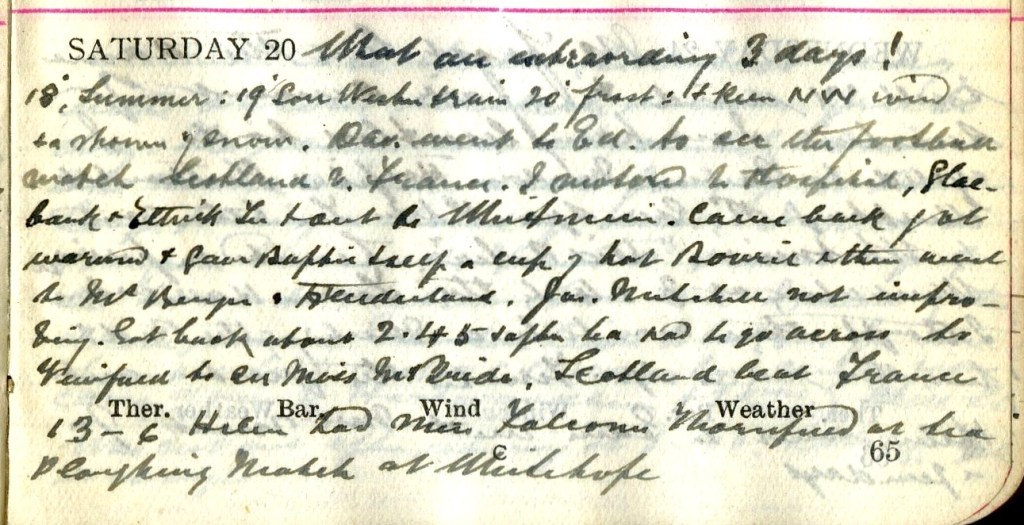 SATURDAY 20 What an extraording 3 days!
18, Summer: 19 Sou Wester & rain 20 frost: & keen NW wind
& a shower of snow. Dav. went to Ed. to see the football
match Scotland v. France. I motored to Hospital, Glae-
bank & Ettrick & out to Whitmuir. Came back got
warmed & gave self a cup of hot Bovril & then went
to Mt Benger & Henderland. Jas. Mitchell not impro-
ving. Got back about 2.45 & after tea had to go across to
to see Miss McBride. Scotland beat France
Ther. Bar. Wind Weather
13-6 Helen had Miss Falconer at tea
Ploughing Match at Whitehope
65